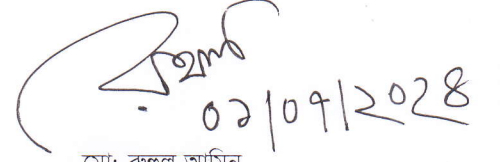 ০১/০৭/২০২৪
মো: রুহুল আমিন